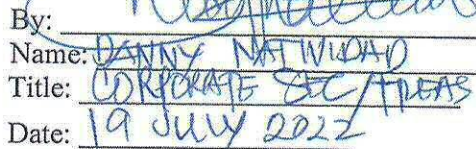 By:
Name: DANNY NATIVIDAD
Title: CORPORATE SEC/TREAS
Date: 19 JULY 2022